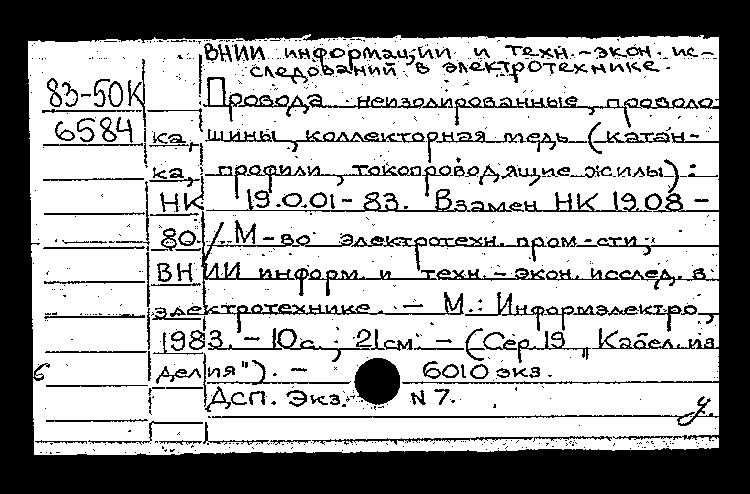 ВНИИ информации и техн.-экон. ис-
следований в электротехнике.
83-50К Провода неизолированные, проволо
6584 ка, шины, коллекторная медь (катан-
ка, профили, токопроводящие жилы):
НК 19.0.01-83. Взамен НК 19.08-
80/ М-во электротехн. пром-сти;
ВНИИ информ. и техн.-экон. исслед. в
электротехнике. - М.: Информэлектро,
1983. - 10с.; 21см. - (Сер. 19 "Кабел. из
делия"). - 6010 экз.
6
ДСП. Экз. N 7.
у.